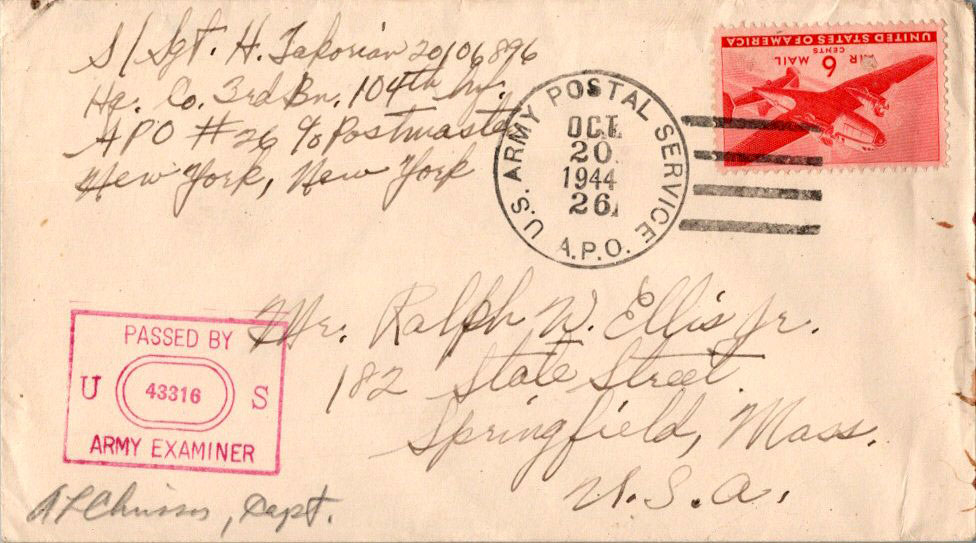 S/Sgt. H. Takorian 20106896
Hq. Co. 3rd Bn. 104th Inf.
APO #26 % Postmaster
New York, New York
U.S. ARMY POSTAL SERVICE
A.P.O.
OCT
20
1944
26
UNITED STATES OF AMERICA
6 CENTS
AIR MAIL
Mr. Ralph W. Ellis Jr.
182 State Street.
Springfield, Mass.
U.S.A.
PASSED BY
U 43316 S
ARMY EXAMINER
Capt.